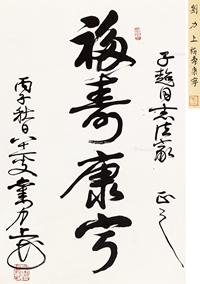 劉力上 福壽康寧
子超同志法家 正之
福壽康寧
丙子秋日八十一叟劉力上